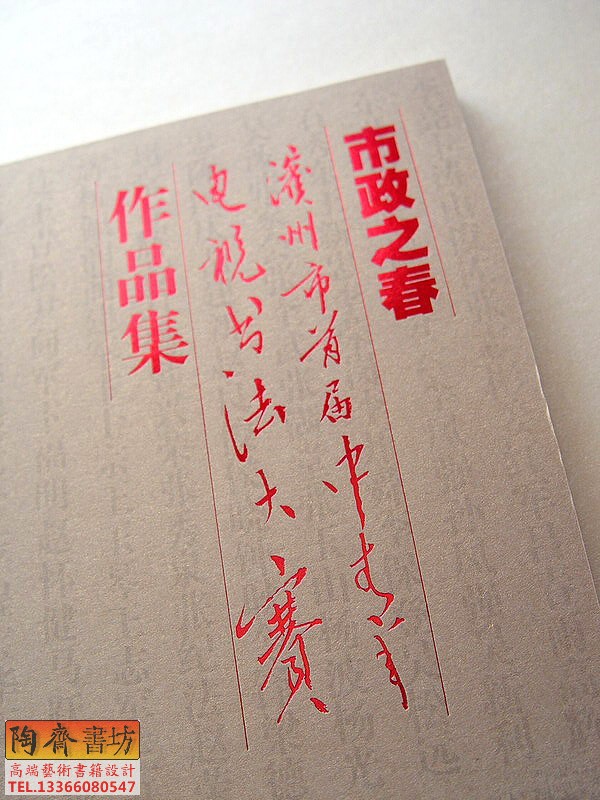 市政之春
濱州市首届中青年
电视书法大賽
作品集
陶齊書坊
高端藝術書籍設計
TEL.13366080547